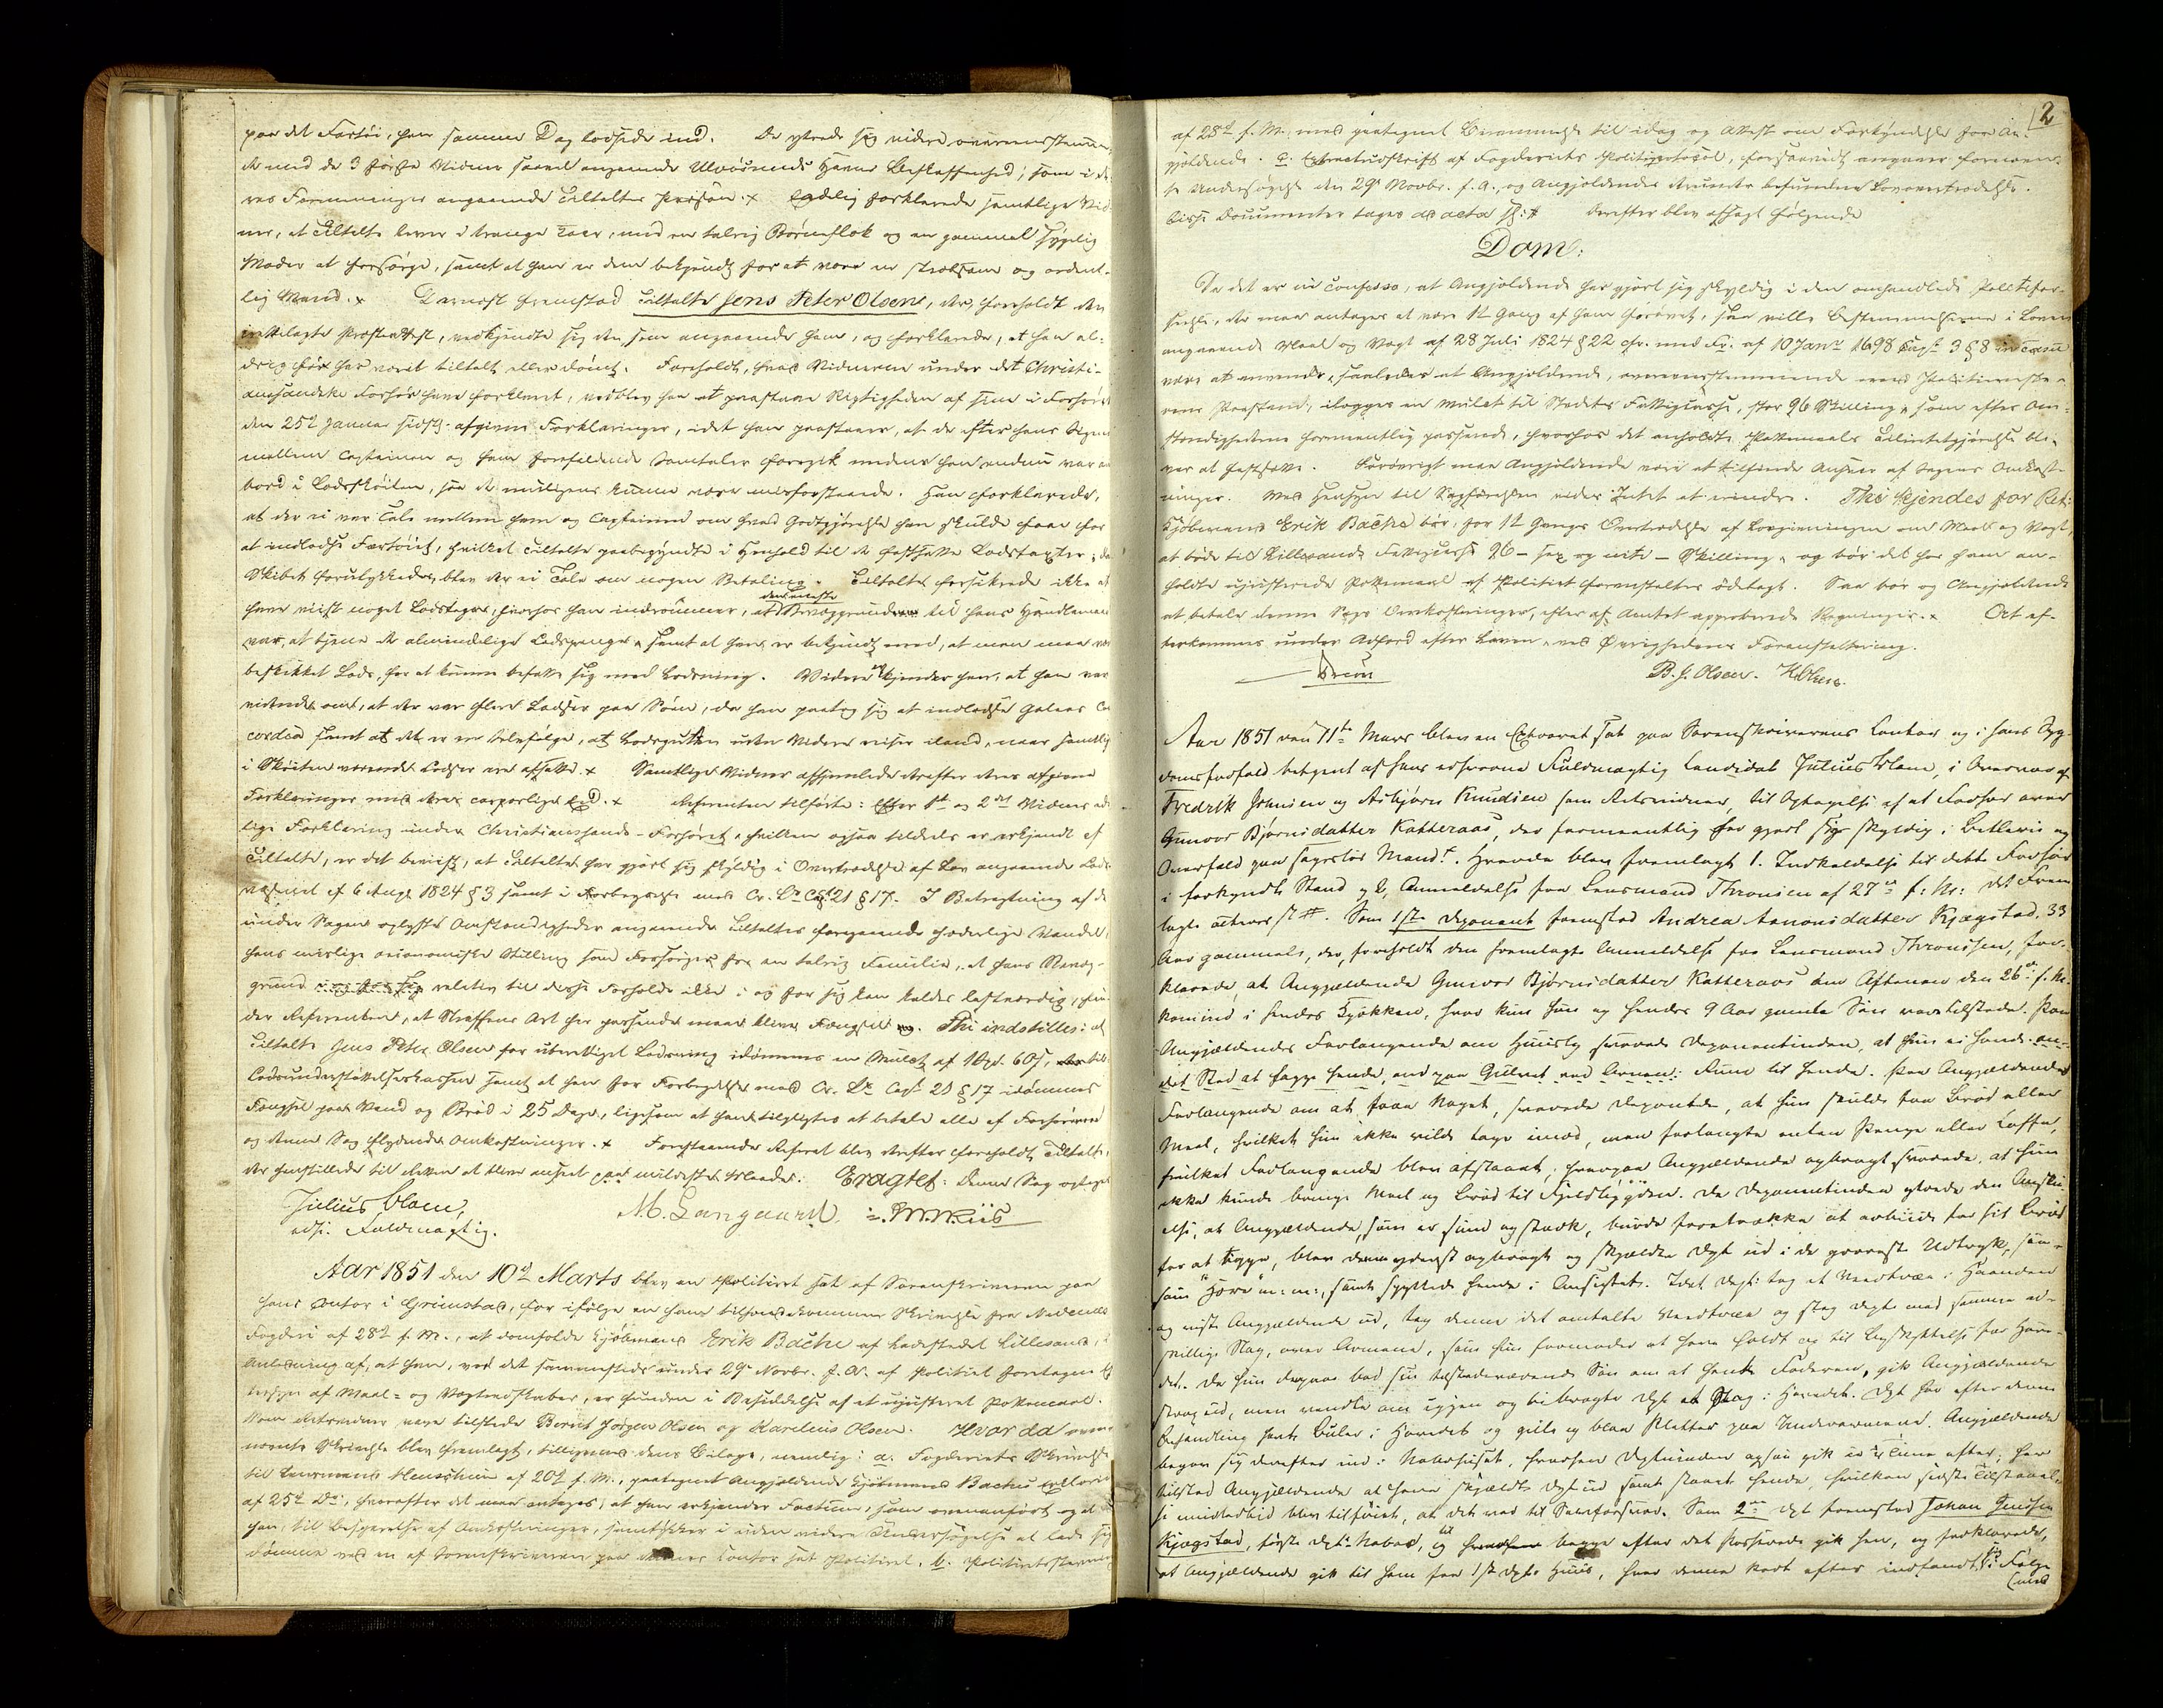 paa det Fartøi, han samme Dag lodsede ind. De ytrede sig videre overeensstemmen-
de med de 3 første Vidner saavel angaaende Ulvøsunds Havns Beskaffenhed, som i de-
res Formeninger angaaende Tiltaltes Person. Endelig forklarede samtlige Vid-
ner, at Tiltalte lever i trange Kaar, med en talrig Børneflok og en gammel sygelig
Moder at forsørge, samt at han er dem bekjendt for at være en stræbsom og ordent-
lig Mand. Dernæst fremstod Tiltalte Jens Peter Olsen, der, foreholdt den
fremlagte Præsteattest, vedkjendte sig den som angaaende ham, og forklarede, at han al-
drig før har været tiltalt eller dømt. Foreholdt, hvad Vidnerne under det Christi-
ansandske Forhør have forklaret, vedblev han at paastaae Rigtigheden af sine i Forhøret
den 25de Januar sidstl. afgivne Forklaringer, idet han paastaaer, at de efter hans Sigende
mellem Capteinen og ham forefaldende Samtaler foregik medens han endnu var om-
bord i Lodsskøiten, saa de muligens kunne være misforstaaede. Han forklarede,
at der ei var Tale mellem ham og Capteinen om hvad Godtgjørelse han skulde faae for
at indlodse Fartøiet, hvilket Tiltalte paabegyndte i Henhold til de fastsatte Lodstaxter; da
Skibet forulykkede, blev der ei Tale om nogen Betaling. Tiltalte forsikrede ikke at
have viist noget Lodstegn, hvorhos han indrømmer, at Bevæggrunden til hans Handlemaade
var, at tjene de almindelige Lodspenge, samt at han er bekjendt med, at man maa være
beskikket Lods, for at kunne befatte sig med Lodsning. Videre erkjender han, at han var
vidende om, at der var flere Lodser paa Søen, da han paatog sig at indlodse Galeas Con-
cordia samt at det er en Selvfølge, at Lodsgutten uden Videre reiser iland, naar samtlige
i Skøiten værende Lodser ere afsatte. Samtlige Vidner afhjemlede derefter deres afgivne
Forklaringer med deres corporlige Eed. Referenten tilførte: Efter 1ste og 2det Vidnes ed-
lige Forklaring under Christianssands-Forhøret, hvilken ogsaa tildels er erkjendt af
Tiltalte, er det beviist, at Tiltalte har gjort sig skyldig i Overtrædelse af Lov angaaende Lods-
væsenet af 6 Aug. 1824 § 3 samt i Forbrydelse mod Cr. L. Cap. 21 § 17. I Betragtning af de
under Sagen oplyste Omstændigheder angaaende Tiltaltes foregaaende hæderlige Vandel,
hans uselige oeconomiske Stilling som Forsørger for en talrig Familie, at hans Bevæg-
grund relativ til disse Forholde ikke i og for sig kan kaldes lastværdig, fin-
der Referenten, at Straffens Art her passende maa blive Fængsel. Thi indstilles: at
Tiltalte Jens Peter Olsen for uberettiget Lodsning idømmes en Mulct af 1 Spd. 60 s, til
Lodsunderstøttelseskassen samt at han for Forbrydelse mod Cr. L. Cap. 21 § 17 idømmes
Fængsel paa Vand og Brød i 25 Dage, ligesom at han tilpligtes at betale alle af Forhørene
og denne Sag flydende Omkostninger. Foranstaaende Referat blev derefter foreholdt Tiltalte,
der henstillede til Retten at blive anseet paa mildeste Maade. Eragtet: Denne Sag optages
Julius Blom,
edsv. Fuldmægtig.
M. Langaard. J. M. Riis
Aar 1851 den 10de Marts blev en Politiret sat af Sorenskriveren paa
hans Contor i Grimstad, for ifølge en ham tilhændekommen Skrivelse fra Nedenæs
Fogderi af 28de f. M., at domfælde Kjøbmand Erik Bache af Ladestedet Lillesand, i
Anledning af, at han, ved det sammesteds under 29de Novbr. f. A. af Politiet foretagne Ef-
tersyn af Maal- og Vægtredskaber, er funden i Besiddelse af et ujusteret Pottemaal.
Som Retsvidner vare tilstede Berent Jørgen Olsen og Karelius Olsen. Hvor da oven-
nævnte Skrivelse blev fremlagt, tilligemed dens Bilage, nemlig: a. Fogderiets Skrivelse
til Lensmand Henschien af 20de f. M., paategnet Angjældende Kjøbmand Baches Erklæring
af 25de Ds., hvorefter det maa antages, at han erkjender Factum, som ovenanført og at
han, til Besparelse af Omkostninger, samtykker i uden videre Undersøgelse at lade sig
dømme ved en af Sorenskriveren paa dennes Contor sat Politiret. b. Politiretsstevning
2
af 28de f. M. med paategnet Berammelse til idag og Attest om Forkyndelse for An-
gjældende. c. Extractudskrift af Fogderiets Politiprotocol, forsaavidt angaaer fornævn-
te Undersøgelse den 29de Novbr. f. A., og Angjældendes derunder befundne Lovovertrædelse.
Disse Documenter tages ad acta. Derefter blev afsagt følgende
Dom:
Da det er in confesso, at Angjældende har gjort sig skyldig i den omhandlede Politifor-
seelse, der maa antages at være 1ste Gang af ham forøvet, saa ville Bestemmelserne i Loven
angaaende Maal og Vægt af 28 Juli 1824 § 22 cfr. med Fr. af 10 Janr 1698 Cap. 3 § 8 in casu
være at anvende, saaledes at Angjældende, overeensstemmende med Politimeste-
rens Paastand, ilægges en Mulct til Stedets Fattigcasse, stor 96 Skilling, som efter Om-
stændighederne formeentlig passende, hvorhos det anholdte Pottemaals Tilintetgjørelse bli-
ver at fastsætte. Forøvrigt maa Angjældende være at tilfinde Ansvar af Sagens Omkost-
ninger. Med Hensyn til Sagførelsen vides Intet at erindre. Thi kjendes for Ret:
Kjøbmand Erik Bache bør for 1ste Gangs Overtrædelse af Lovgivningen om Maal og Vægt,
at bøde til Lillesands Fattigcasse 96 – sex og niti – Skilling, og bør det hos ham an-
holdte ujusterede Pottemaal af Politiet foranstaltes ødelagt. Saa bør og Angjældende
at betale denne Sags Omkostninger, efter af Amtet approberede Regninger. At ef-
terkommes under Adfærd efter Loven, ved Øvrighedens Foranstaltning.
B. J. Olsen. K. Olsen.
Aar 1851 den 11te Mars blev en Extraret sat paa Sorenskriverens Contor og i hans Syg-
domsforfald betjent af hans edsvorne Fuldmægtig Candidat Julius Blom, i Overvær af
Fredrik Jensen og Asbjørn Knudsen som Retsvidner, til Optagelse af et Forhør over
Gunvor Bjørnsdatter Katteraas, der formeentlig har gjort sig skyldig i Betlerie og
Overfald paa sagesløs Mand. Hvorda blev fremlagt 1. Indkaldelse til dette Forhør
i forkyndt Stand og 2, Anmeldelse fra Lensmand Thronsen af 27de f: M: Det Frem-
lagte actives. Som 1ste Deponent fremstod Andrea Aanonsdatter Kjægstad, 33
Aar gammel, der, foreholdt den fremlagte Anmeldelse fra Lensmand Thronsen, for-
klarede, at Angjældende Gunvor Bjørnsdatter Katteraas om Aftenen den 26de f. M.
kom ind i hendes Kjøkken, hvor kun hun og hendes 9 Aar gamle Søn vare tilstede. Paa
Angjældendes Forlangende om Huusly svarede Deponentinden, at hun ei havde an-
det Sted at lægge hende, end paa Gulvet ved Arnen. Paa Angjældendes
Forlangende om at faae Noget, svarede Deponentinden, at hun skulde faa Brød eller
Meel, hvilket hun ikke vilde tage imod, men forlangte enten Penge eller Caffe,
hvilket Forlangende blev afslaaet, hvorpaa Angjældende opbragt svarede, at hun
ikke kunde bringe Meel og Brød til Da Deponentinden ytrede den Anskue-
else, at Angjældende, som er sund og stærk, burde foretrække at arbeide for sit Brød
for at tigge, blev denne yderst opbragt og skjældte Dept. ud i de groveste Udtryk, saa-
som "Hore" m: m:, samt spyttede hende i Ansigtet. Idet Dept. tog et Vedtræe i Haanden
og viste Angjældende ud, tog denne det omtalte Vedtræe og slog Dept. med samme ad-
skillige Slag, over Armene, som hun formoder at have holdt op til Beskyttelse for Hove-
det. Da hun derpaa bad sin tilstedeværende Søn om at hente Faderen, gik Angjældende
strax ud, men vendte om igjen og bibragte Dept. et Slag i Hovedet. Dept. har efter denne
Behandling havt Buler i Hovedet og gule og blaa Pletter paa Underarmene. Angjældende
begav sig derefter ind i Nabohuset, hvorhen Deptinden ogsaa gik en ½ Time efter; her
tilstod Angjældende at have skjældt Dept. ud samt slaaet hende, hvilken sidste Tilstaael-
se imidlertid blev tilføiet, at det var til Selvforsvar. Som 2den Dept. fremstod Johan Jenssen
Kjægstad, første Depts. Nabo, til hvem begge efter det Passerede gik hen, og forklarede,
at Angjældende gik til ham fra 1ste Depts. Huus, hvor denne kort efter indfandt sig i Følge
med